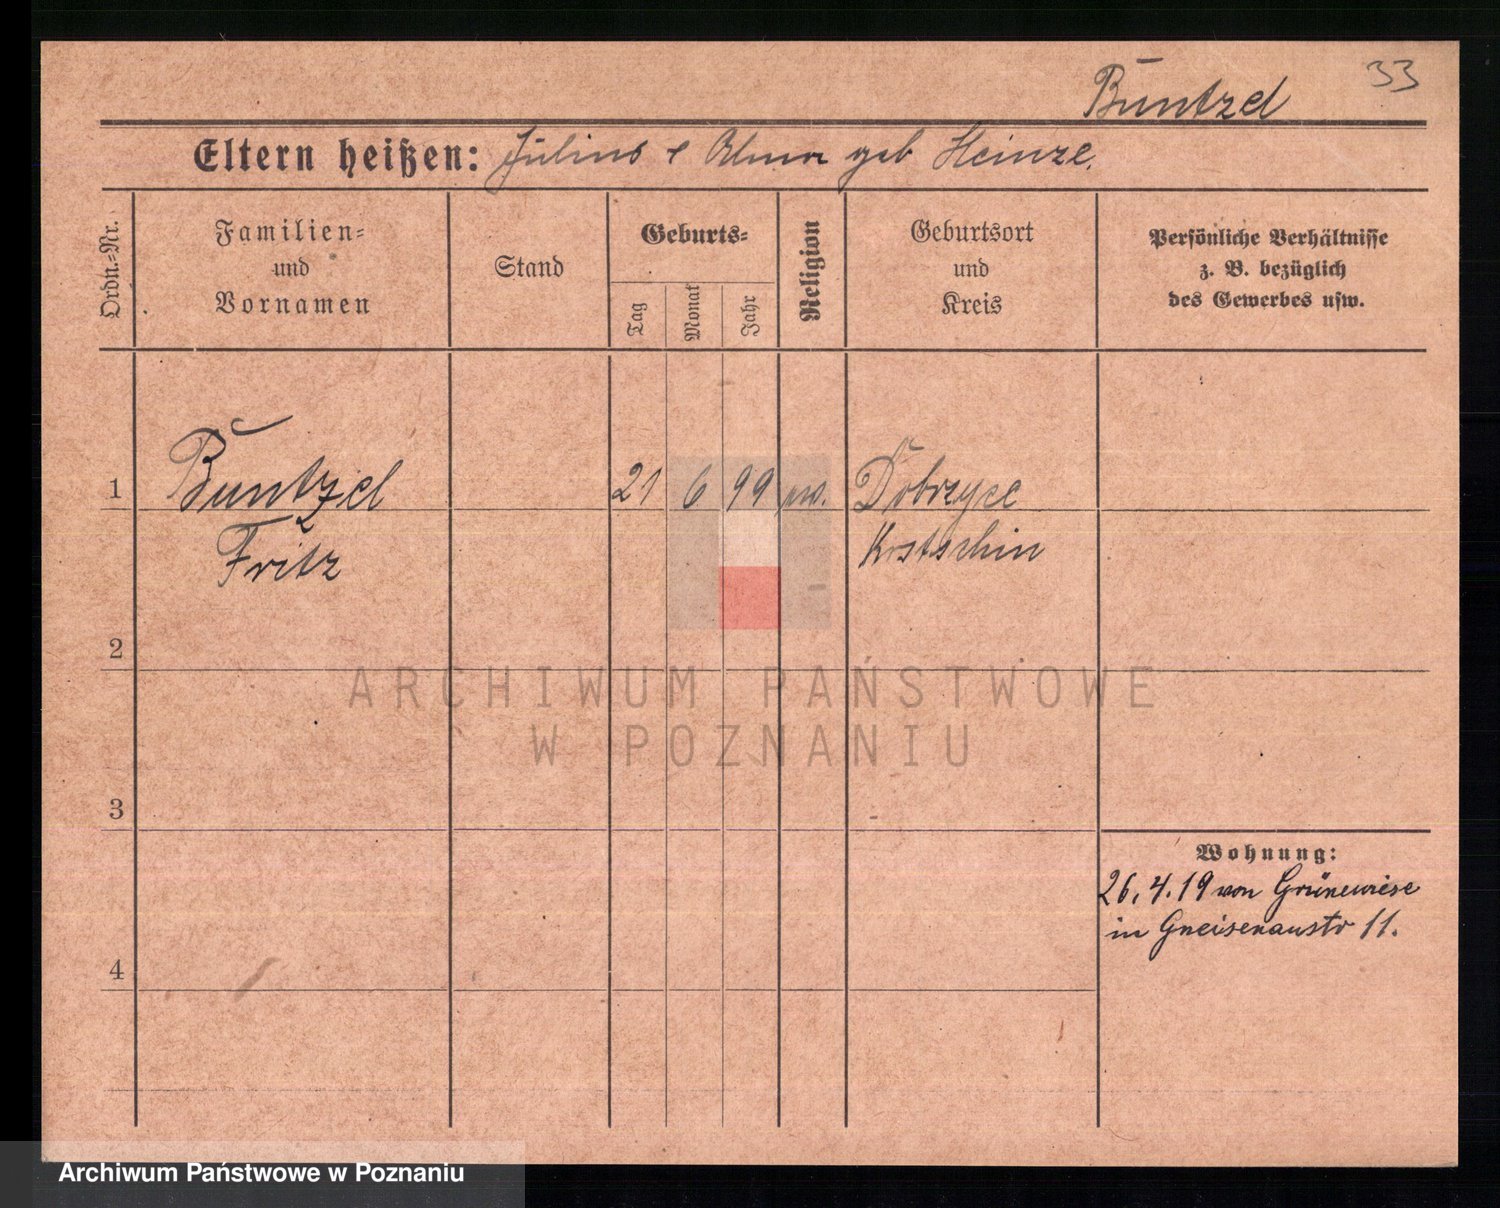 33
Buntzel
Eltern heißen: Julius & Alma geb Heinze.
Ordn.-Nr.
Familien-
und
Vornamen
Stand
Geburts-
Tag
Monat
Jahr
Religion
Geburtsort
und
Kreis
Persönliche Verhältnisse
z. B. bezüglich
des Gewerbes usw.
1 Buntzel 21 6 99 Dobrzyce
Fritz
2
3
4
Wohnung:
26.4.19 von Grünewiese
in Gneisenaustr 11.
ARCHIWUM PAŃSTWOWE
W POZNANIU
Archiwum Państwowe w Poznaniu